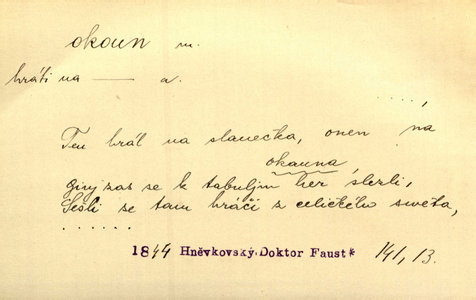 okoun m.
hráti na —— a.
. . . . . ,
Ten hrál na slanečka, onen na
okauna,
giný zas se k tabulým her slezli,
Sešli se tam hráči z celičkého sweta,
. . . . . .
1844 Hněvkovský, Doktor Faust* 141, 13.